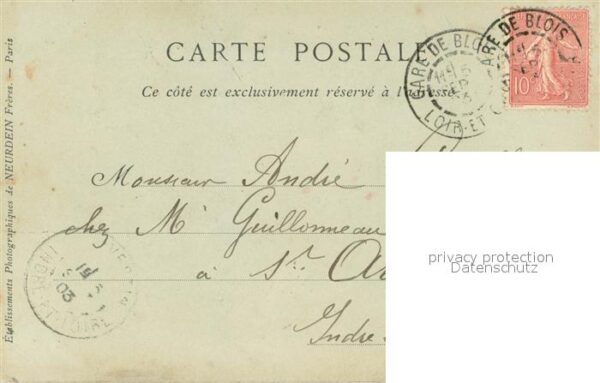 CARTE POSTALE
Ce côté est exclusivement réservé à l'adresse
GARE DE BLOIS
LOIR-ET-
GARE DE BLOIS
10
Monsieur André
chez Mr Guillonneau
à St. A
Indre
privacy protection
Datenschutz
INDRE-ET-LOIRE
03
Etablissements Photographiques de NEURDEIN Frères. — Paris